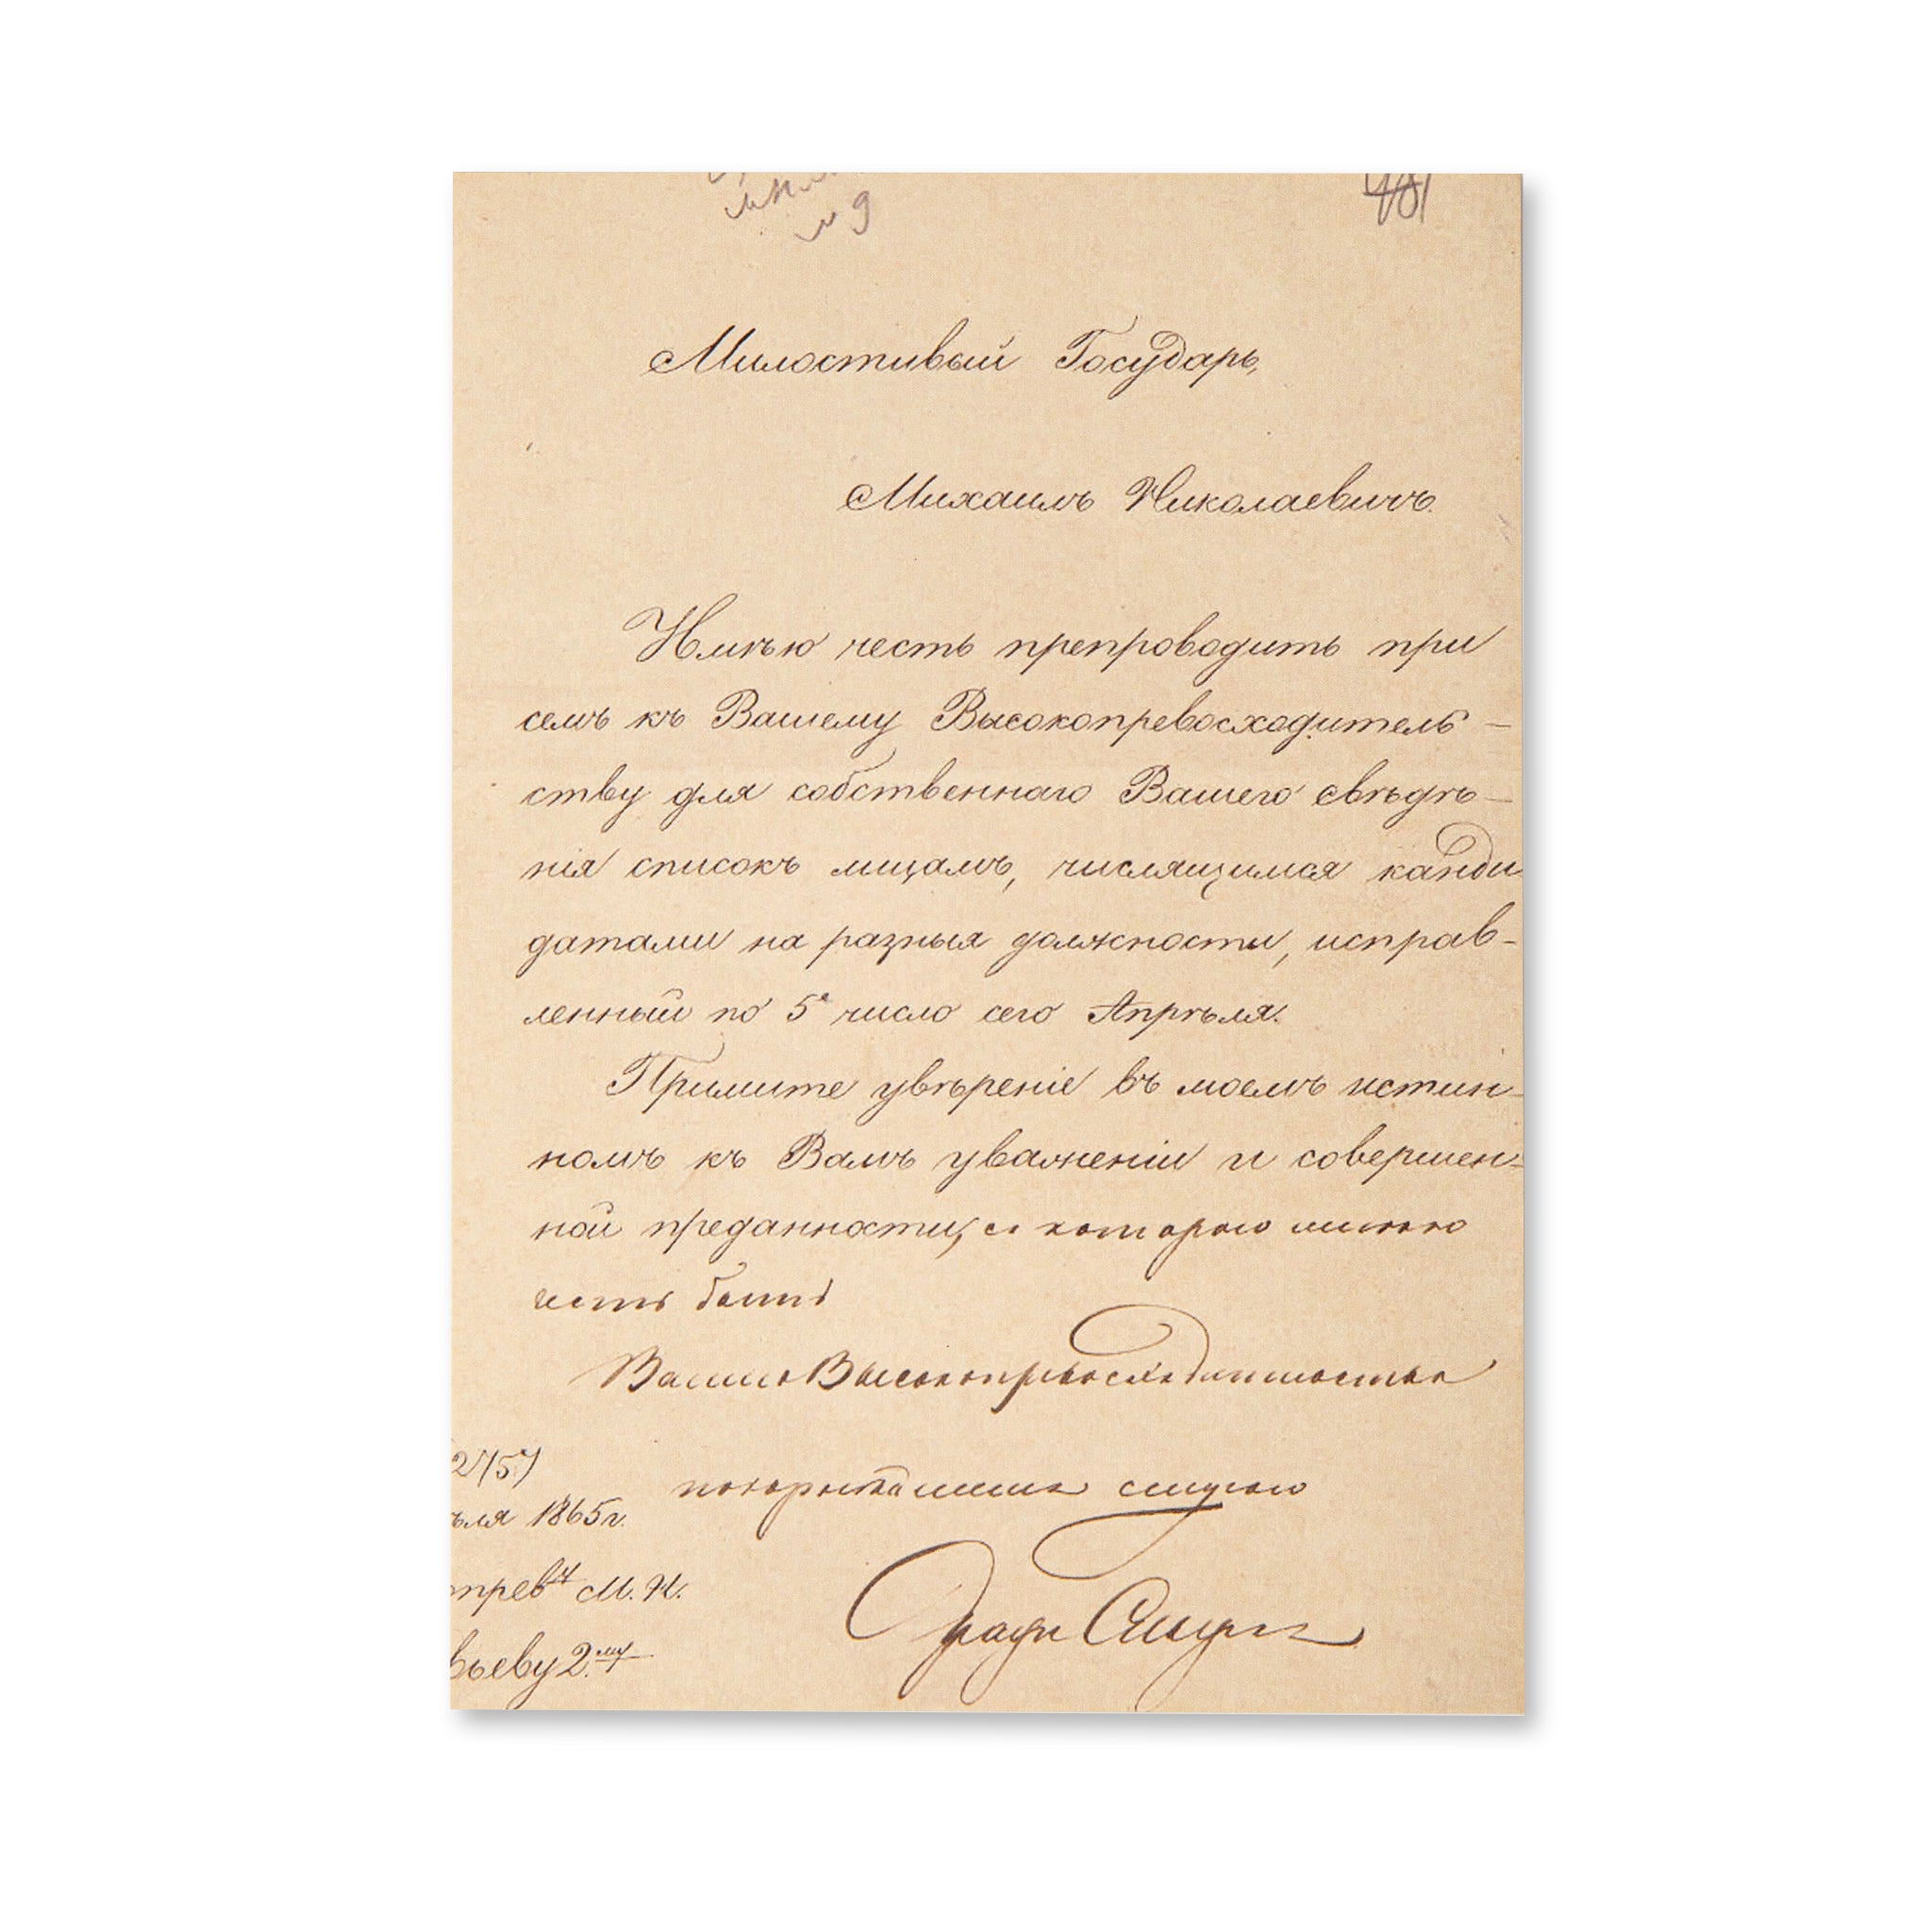 481
Милостивый Государь,
Михаилъ Николаевичъ.
Имѣю честь препроводить при
семъ къ Вашему Высокопревосходитель-
ству для собственнаго Вашего свѣдѣ-
нія списокъ лицамъ, числящимся канди
датами на разныя должности, исправ-
ленный по 5е число сего Апрѣля.
Примите увѣреніе въ моемъ истин-
номъ къ Вамъ уваженіи и совершен-
ной преданности, съ которою имѣю
честь быть
Вашего Высокопревосходительства
покорнѣйшимъ слугою
2757
ѣля 1865 г.
опревву М. Н.
вьеву 2.му